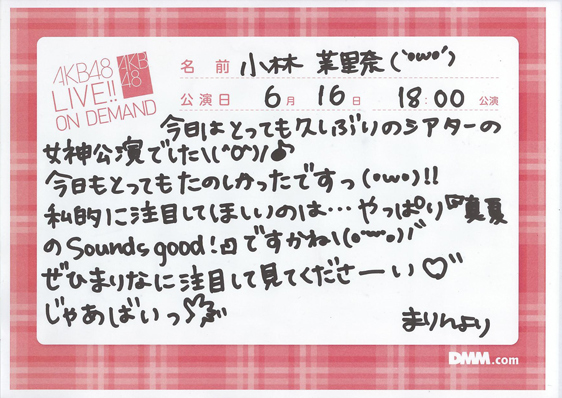 AKB48
LIVE!!
ON DEMAND
AKB
48
名 前 小林 茉里奈(`・ω・´)
公演日 6月 16日 18:00 公演
今日はとっても久しぶりのシアターの
女神公演でした\(^O^)/♪
今日もとってもたのしかったですっ(・ω・)!!
私的に注目してほしいのは…やっぱり『真夏
のSounds good!』ですかね\(・ω・)/
ぜひまりなに注目して見てくださーい♡
じゃあばいっ
まりんより
DMM.com